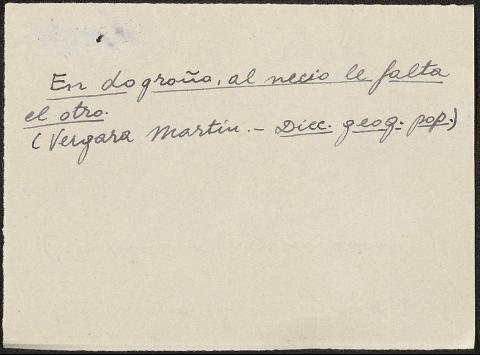 En Logroño, al necio le falta
el otro.
(Vergara Martín. - Dicc. geog. pop.)